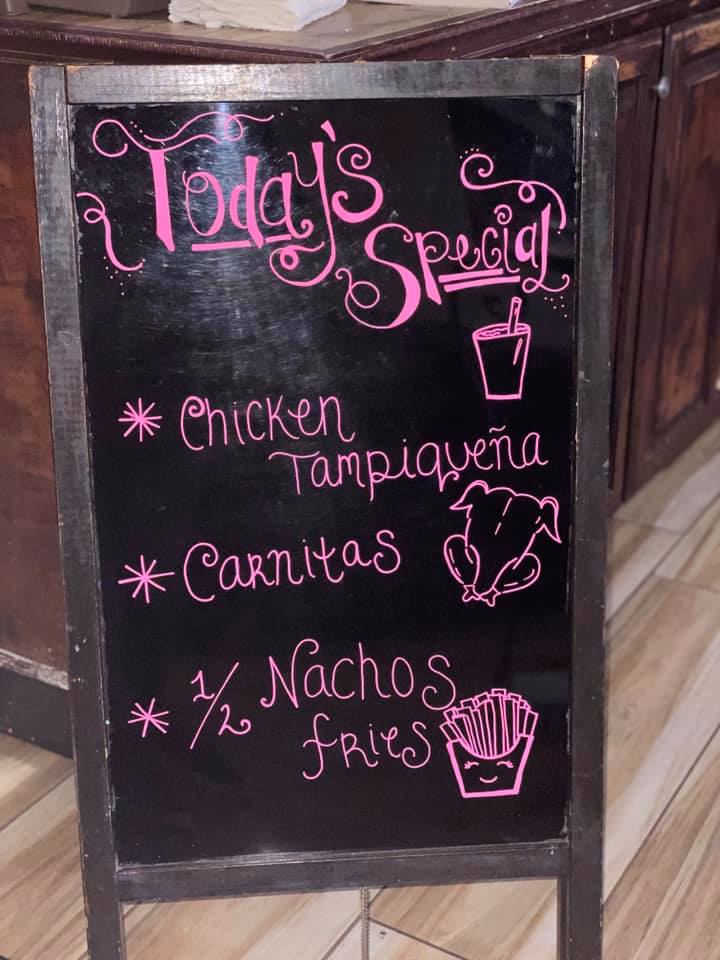 Today's
Special
* Chicken
Tampiqueña
* Carnitas
* 1/2 Nachos
fries